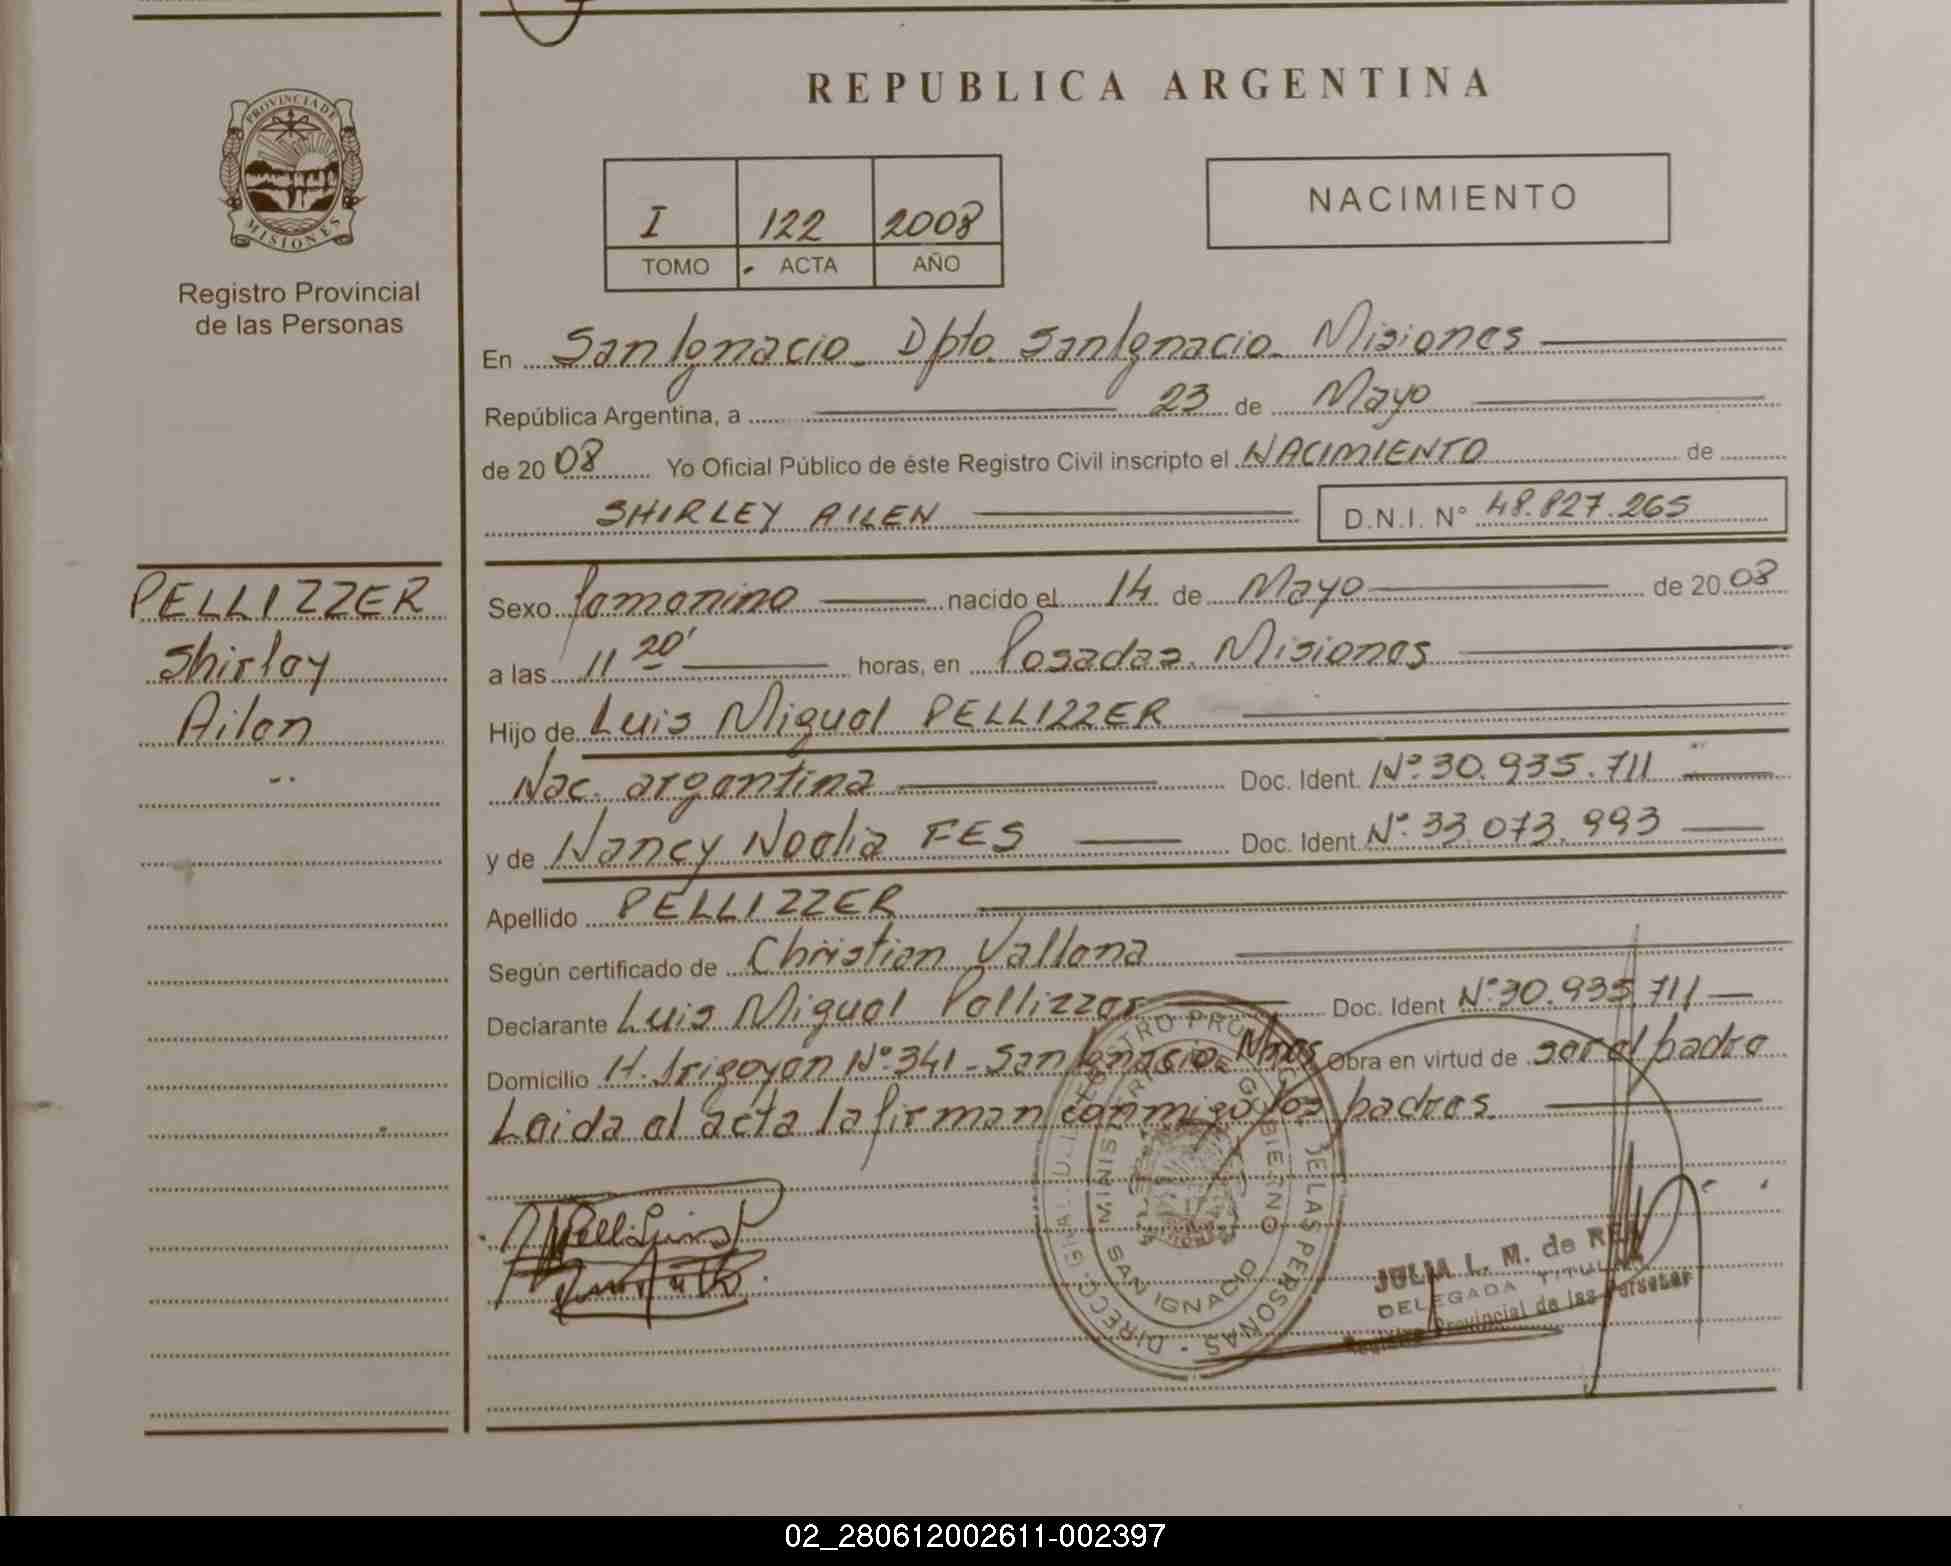 REPUBLICA ARGENTINA
PROVINCIA DE
MISIONES
Registro Provincial
de las Personas
I 122 2008
TOMO ACTA AÑO
NACIMIENTO
En San Ignacio Dpto San Ignacio Misiones
República Argentina, a 23 de Mayo
de 20 08 Yo Oficial Público de éste Registro Civil inscripto el NACIMIENTO de
SHIRLEY AILEN D.N.I. N° 48.827.265
PELLIZZER
Shirley
Ailen
Sexo femenino nacido el 14 de Mayo de 20 08
a las 11 20' horas, en Posadas Misiones
Hijo de Luis Miguel PELLIZZER
Nac. argentina Doc. Ident. N° 30.935.711
y de Nancy Noelia FES Doc. Ident. N° 33.073.993
Apellido PELLIZZER
Según certificado de Christian Vallena
Declarante Luis Miguel Pellizzer Doc. Ident N° 30.935.711
Domicilio H. Irigoyen N° 341 - San Ignacio Mnes Obra en virtud de ser el padre
Leida el acta la firman conmigo los padres.
MINISTERIO DE GOBIERNO
SAN IGNACIO
DE LAS PERSONAS
JULIA L. M. de
DELEGADA TITULAR
Registro Provincial de las Personas
02_280612002611-002397